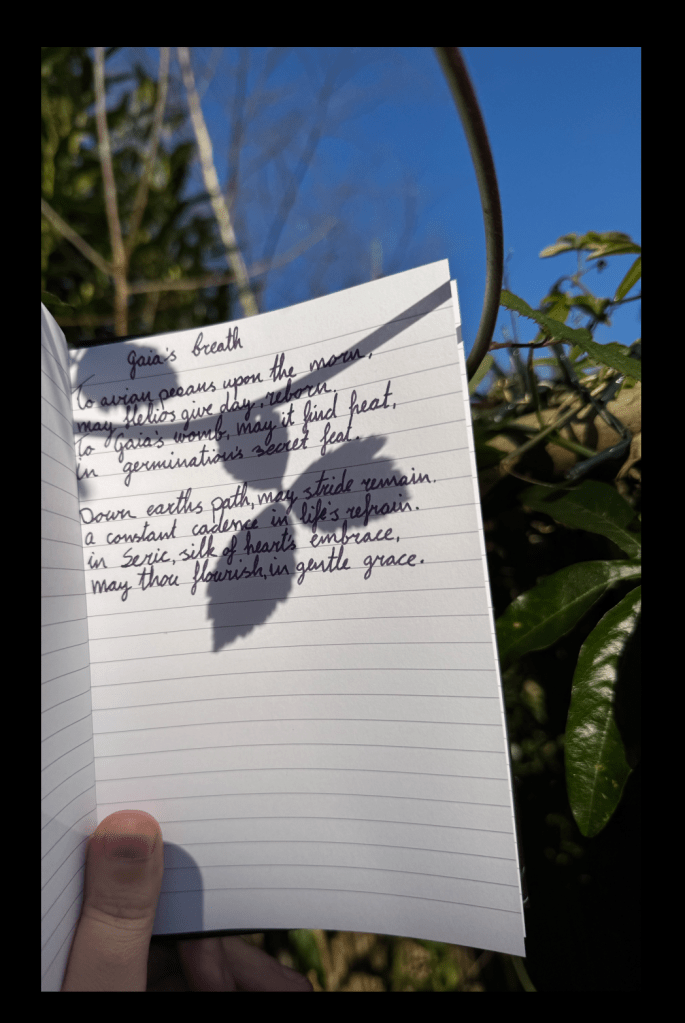 Gaia's breath
To avian paeans upon the morn,
may Helios give day, reborn,
to Gaia's womb, may it find heat,
in germination's secret feat.
Down earths path, may stride remain.
a constant cadence in life's refrain.
in Seric, silk of heart's embrace,
may thou flourish, in gentle grace.